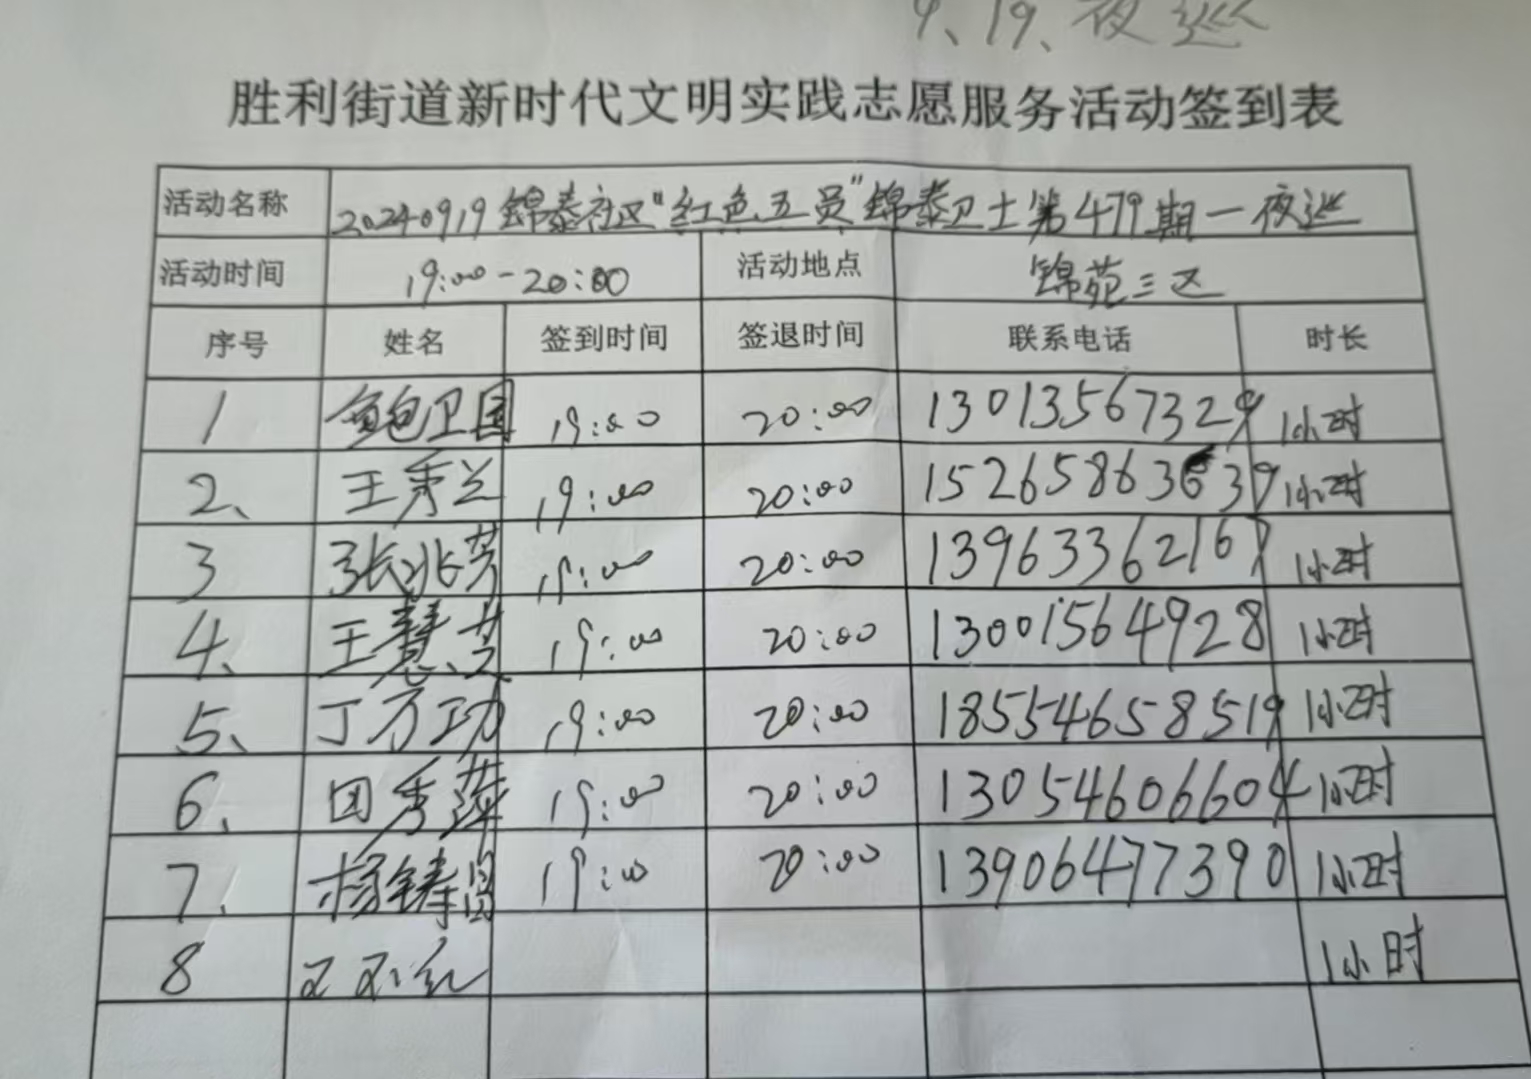 9、19、夜巡
胜利街道新时代文明实践志愿服务活动签到表
活动名称 20240919锦泰社区“红色五员”锦泰卫士第479期一夜巡
活动时间 19:00-20:00 活动地点 锦苑三区
序号 姓名 签到时间 签退时间 联系电话 时长
1 鲍卫国 19:00 20:00 13013567329 1小时
2、 王秀兰 19:00 20:00 15265863639 1小时
3 张兆芳 19:00 20:00 13963362167 1小时
4、 王慧芝 19:00 20:00 13001564928 1小时
5、 丁万功 19:00 20:00 18554658519 1小时
6、 田秀萍 19:00 20:00 13054606604 1小时
7、 杨铸圆 19:00 20:00 13906477390 1小时
8 1小时